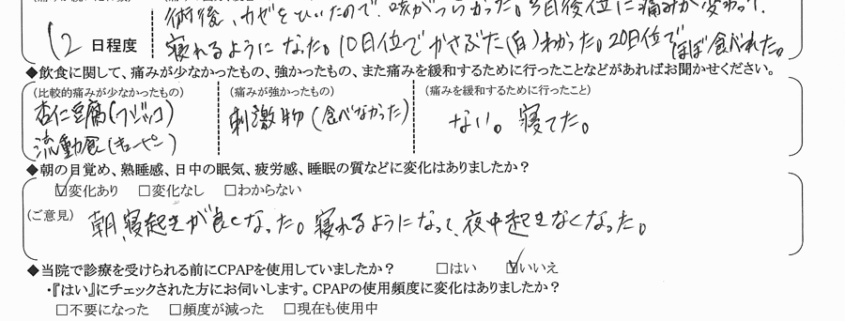 術後、カゼをひいたので、咳がつらかった。3日後位に痛みが変わって、
12 日程度
寝れるようになった。10日位でかさぶた(白)わかった。20日位でほぼ食べれた。
◆飲食に関して、痛みが少なかったもの、強かったもの、また痛みを緩和するために行ったことなどがあればお聞かせください。
(比較的痛みが少なかったもの)
杏仁豆腐(フジッコ)
流動食(キューピー)
(痛みが強かったもの)
刺激物(食べなかった)
(痛みを緩和するために行ったこと)
ない。寝てた。
◆朝の目覚め、熟睡感、日中の眠気、疲労感、睡眠の質などに変化はありましたか?
☑変化あり □変化なし □わからない
(ご意見)
朝、寝起きが良くなった。寝れるようになって、夜中起きなくなった。
◆当院で診療を受けられる前にCPAPを使用していましたか? □はい ☑いいえ
・『はい』にチェックされた方にお伺いします。CPAPの使用頻度に変化はありましたか?
□不要になった □頻度が減った □現在も使用中